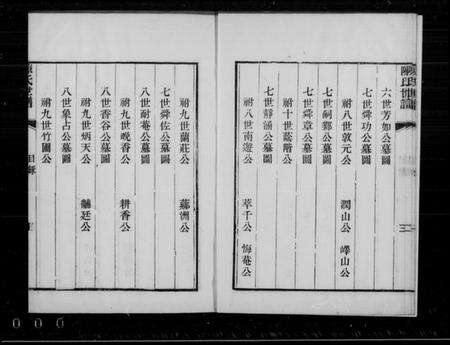 六世芳如公墓圖
七世舜功公墓圖
祔八世敦元公 潤山公 嶧山公
七世嗣鄴公墓圖
七世舜章公墓圖
祔十世菘階公
七世靜涵公墓圖
祔八世南遊公 莘千公 悔菴公
祔九世蘭莊公 蘇洲公
七世舜佐公墓圖
八世耐菴公墓圖
祔九世晚香公 耕香公
八世香谷公墓圖
祔九世炳天公 颺廷公
八世象占公墓圖
祔九世竹圃公
目錄